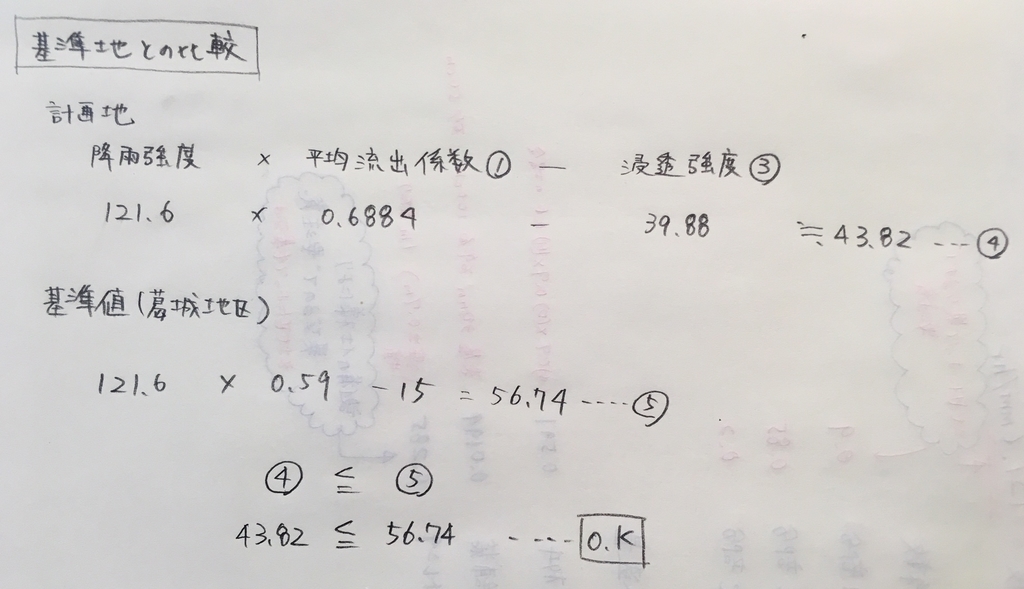 基準地との比較
計画地
降雨強度 × 平均流出係数① ― 浸透強度③
121.6 × 0.6884 － 39.88 ≒ 43.82 ---- ④
基準値(葛城地区)
121.6 × 0.59 － 15 = 56.74 ----- ⑤
④ ≦ ⑤
43.82 ≦ 56.74 ---- O.K